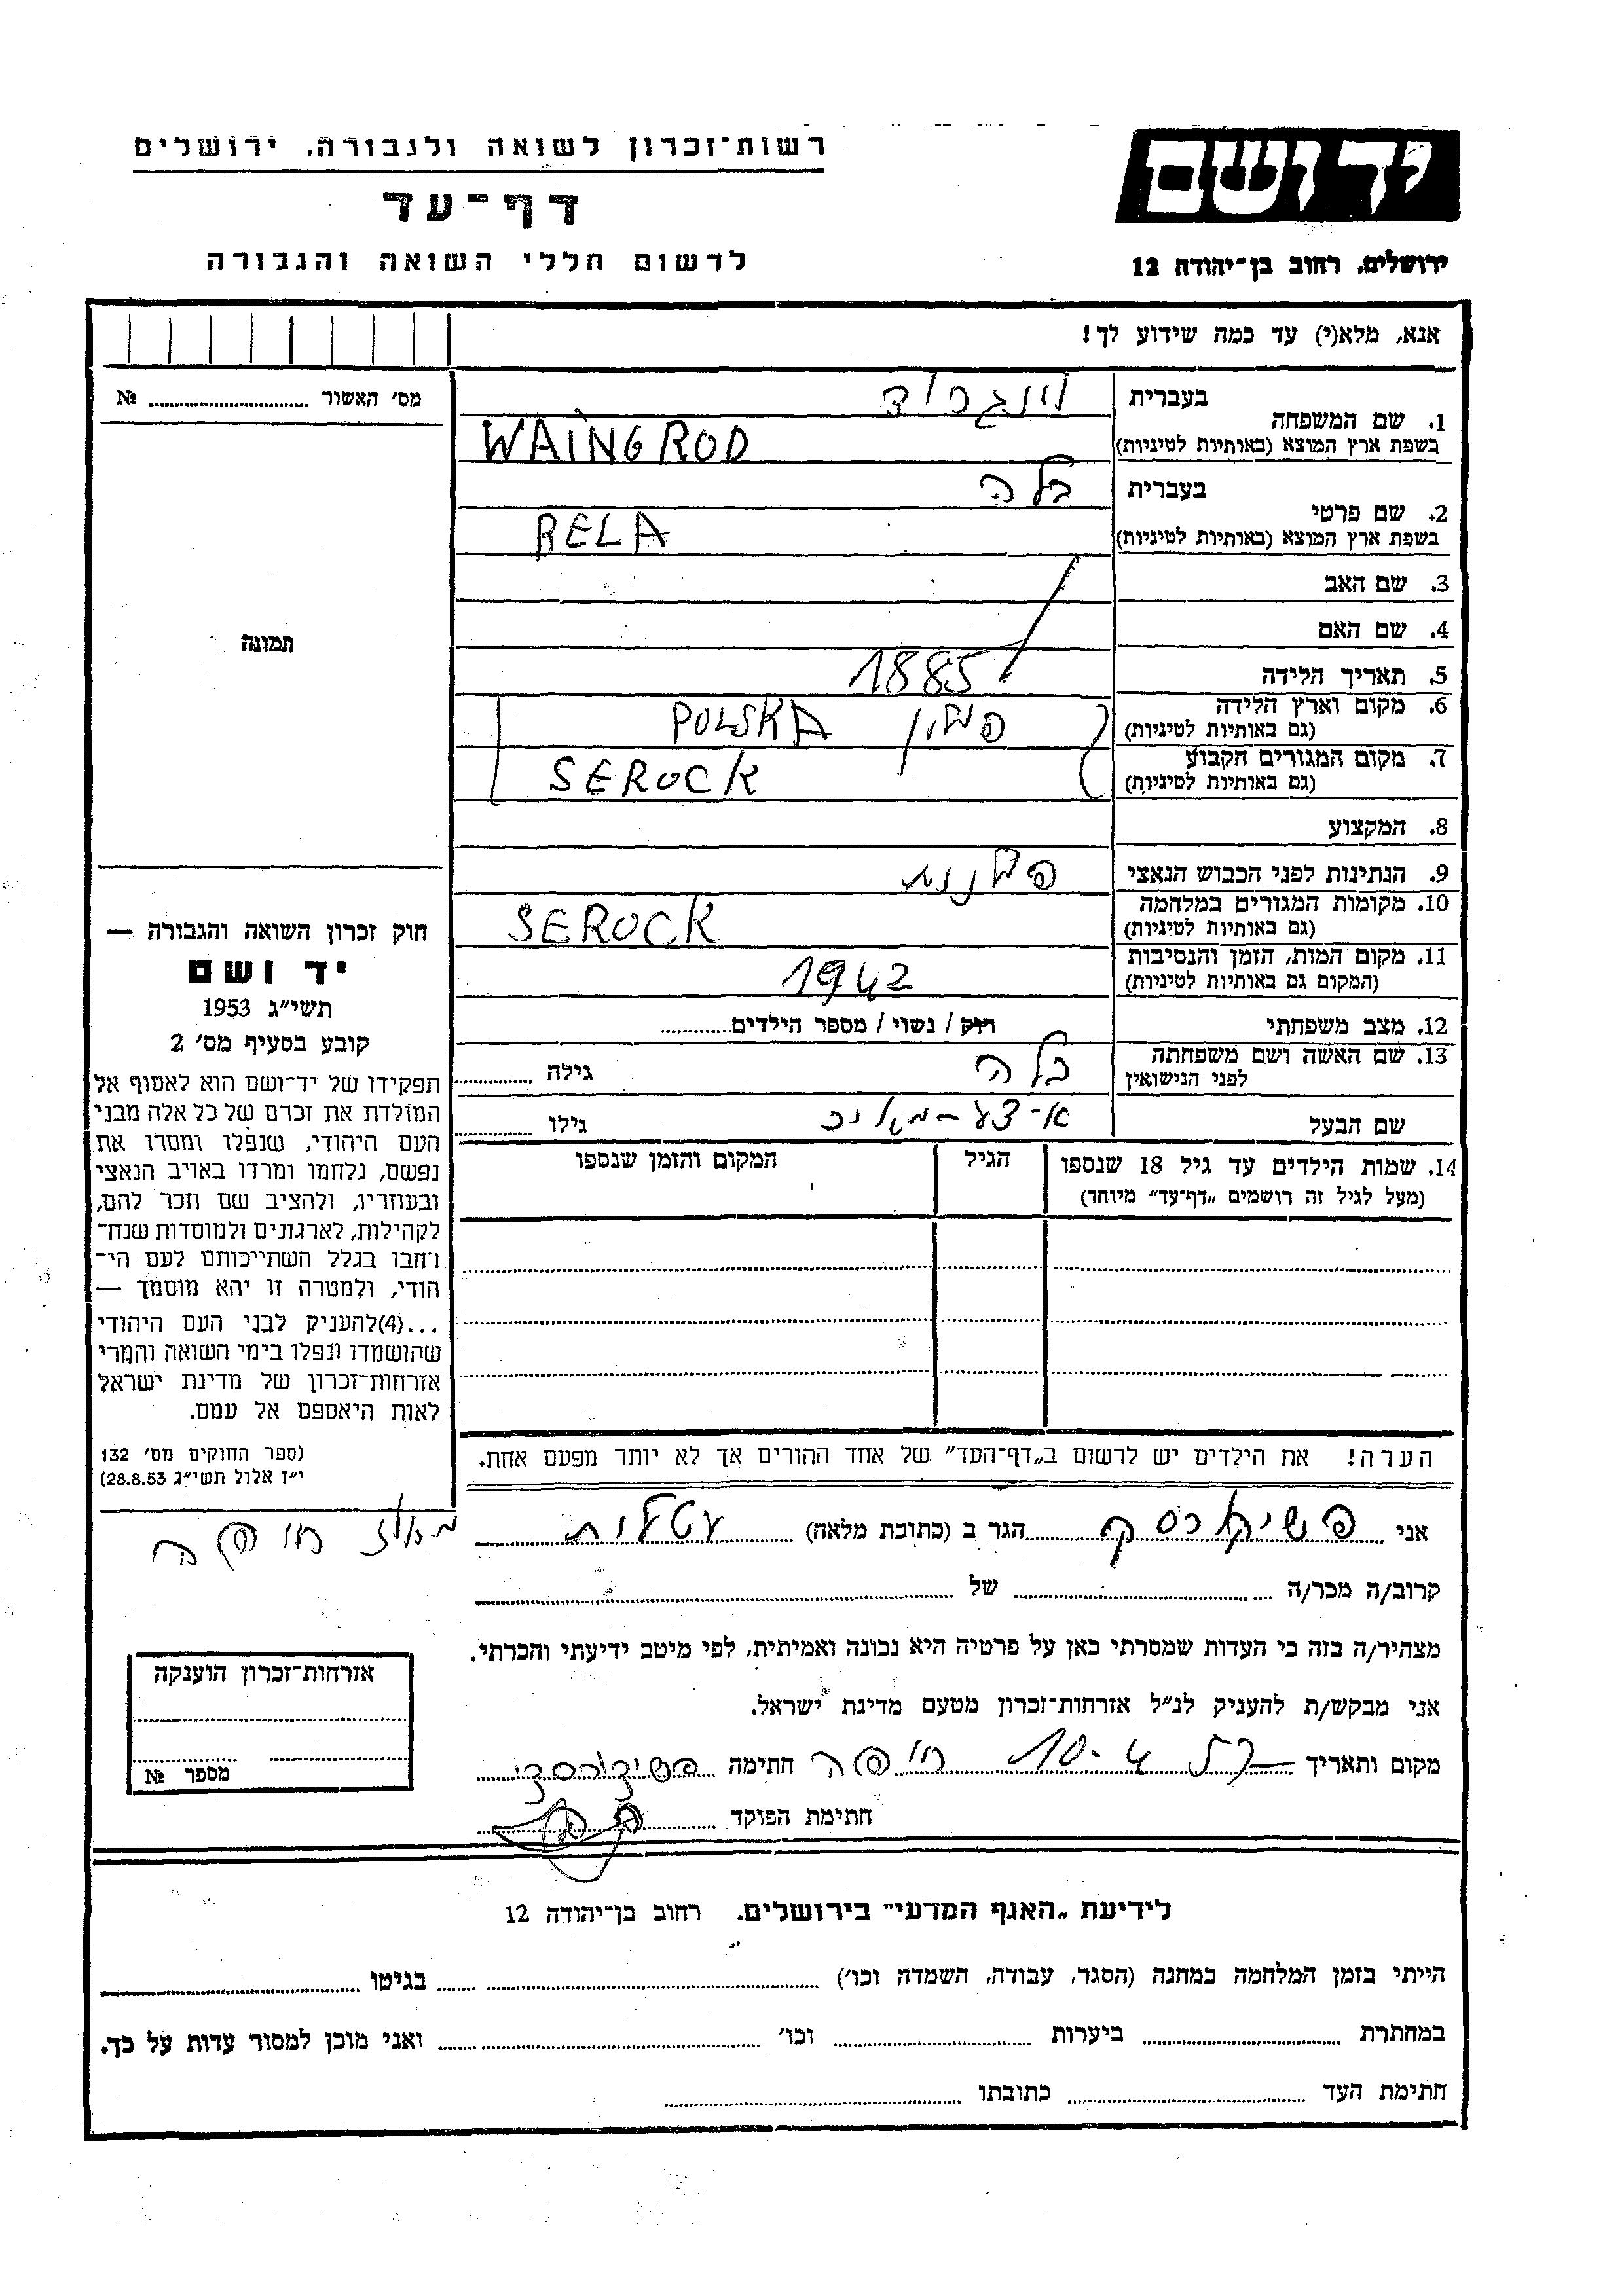 רשות־זכרון לשואה ולגבורה, ירושלים
דף־עד
לרשום חללי השואה והגבורה
יד ושם
ירושלים, רחוב בן־יהודה 12
אנא, מלא(י) עד כמה שידוע לך!
מס׳ האשור № ........
תמונה
1. שם המשפחה
בעברית וינגרוד
בשפת ארץ המוצא (באותיות לטיניות) WAINGROD
2. שם פרטי
בעברית בלה
בשפת ארץ המוצא (באותיות לטיניות) BELA
3. שם האב
4. שם האם
5. תאריך הלידה 1885
6. מקום וארץ הלידה
(גם באותיות לטיניות) פולין POLSKA
7. מקום המגורים הקבוע
(גם באותיות לטיניות) SEROCK
8. המקצוע
9. הנתינות לפני הכבוש הנאצי פולנית
10. מקומות המגורים במלחמה
(גם באותיות לטיניות) SEROCK
11. מקום המות, הזמן והנסיבות
(המקום גם באותיות לטיניות) 1942
12. מצב משפחתי רוק / נשוי / מספר הילדים........
13. שם האשה ושם משפחתה
לפני הנישואין בלה גילה ........
שם הבעל גילו ........
14. שמות הילדים עד גיל 18 שנספו הגיל המקום והזמן שנספו
(מעל לגיל זה רושמים „דף־עד״ מיוחד)
הערה! את הילדים יש לרשום ב„דף־העד״ של אחד ההורים אך לא יותר מפעם אחת.
חוק זכרון השואה והגבורה —
יד ושם
תשי״ג 1953
קובע בסעיף מס׳ 2
תפקידו של יד־ושם הוא לאסוף אל
המולדת את זכרם של כל אלה מבני
העם היהודי, שנפלו ומסרו את
נפשם, נלחמו ומרדו באויב הנאצי
ובעוזריו, ולהציב שם וזכר להם,
לקהילות, לארגונים ולמוסדות שנח־
רחבו בגלל השתייכותם לעם הי־
הודי, ולמטרה זו יהא מוסמך —
...(4)להעניק לבני העם היהודי
שהושמדו ונפלו בימי השואה והמרי
אזרחות־זכרון של מדינת ישראל
לאות היאספם אל עמם.
(ספר החוקים מס׳ 132
י״ז אלול תשי״ג 28.8.53)
אני ........ הגר ב (כתובת מלאה) ........ חיפה
קרוב/ה מכר/ה ........ של ........
מצהיר/ה בזה כי העדות שמסרתי כאן על פרטיה היא נכונה ואמיתית, לפי מיטב ידיעתי והכרתי.
אני מבקש/ת להעניק לנ״ל אזרחות־זכרון מטעם מדינת ישראל.
מקום ותאריך 10-4-57 חיפה חתימה ........
חתימת הפוקד ........
אזרחות־זכרון הוענקה
מספר №
לידיעת „האגף המדעי״ בירושלים. רחוב בן־יהודה 12
הייתי בזמן המלחמה במחנה (הסגר, עבודה, השמדה וכו׳) ........ בגיטו ........
במחתרת ........ ביערות ........ וכו׳ ........ ואני מוכן למסור עדות על כך.
חתימת העד ........ כתובתו ........